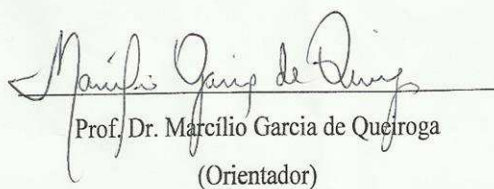 Marcílio Garcia de Queiroga
Prof. Dr. Marcílio Garcia de Queiroga
(Orientador)